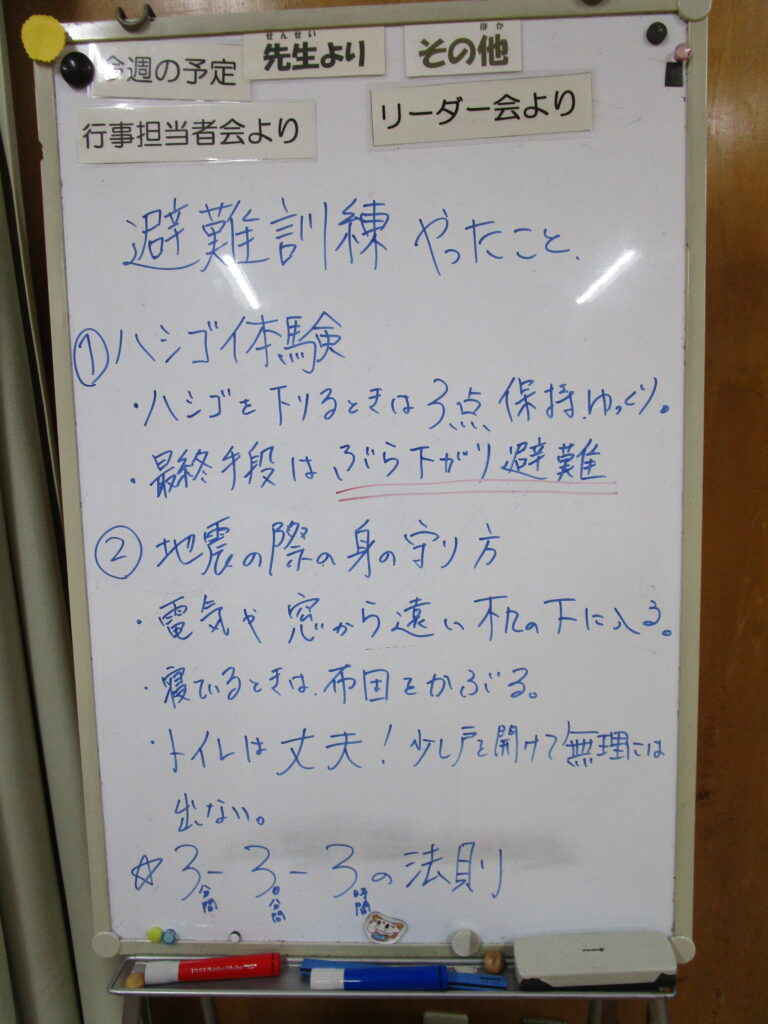 せんせい
先生より
ほか
その他
今週の予定
行事担当者会より
リーダー会より
避難訓練 やったこと.
①ハシゴ体験
・ハシゴを下りるときは3点保持.ゆっくり。
・最終手段は ぶら下がり避難
②地震の際の身の守り方
・電気や窓から遠い机の下に入る。
・寝ているときは、布団をかぶる。
・トイレは丈夫!少し戸を開けて無理には
出ない。
☆3分間-30分間-3時間の法則